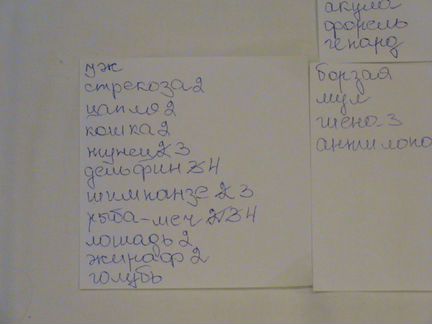 акула
форель
гепард
уж
стрекоза 2
цапля 2
кошка 2
3
дельфин 4
шимпанзе 3
рыба-меч 4
лошадь 2
жираф 2
голубь
борзая
мул
3
антилопа